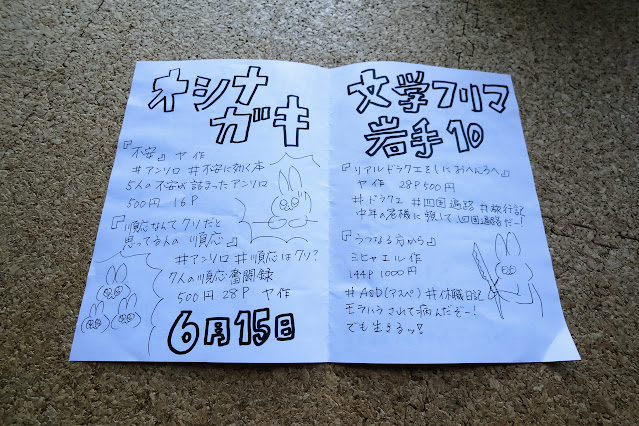 オシナ
ガキ
『不安』 ヤ 作
#アンソロ #不安に効く本
5人の不安が詰まったアンソロ
500円 16P
『順応なんてクソだと
思ってる人の 順応』
#アンソロ #順応はクソ?
7人の順応奮闘録
500円 28P ヤ作
6月15日
文学フリマ
岩手10
『リアルドラクエをしにおへんろへ』
ヤ 作 28P 500円
#ドラクエ #四国遍路 #旅行記
中年の危機に瀕して四国遍路だー!
『うつなる方から』
ミヒャエル作
144P 1000円
#ASD(アスペ) #休職日記
モラハラされて病んだぞー!
でも生きるッ!